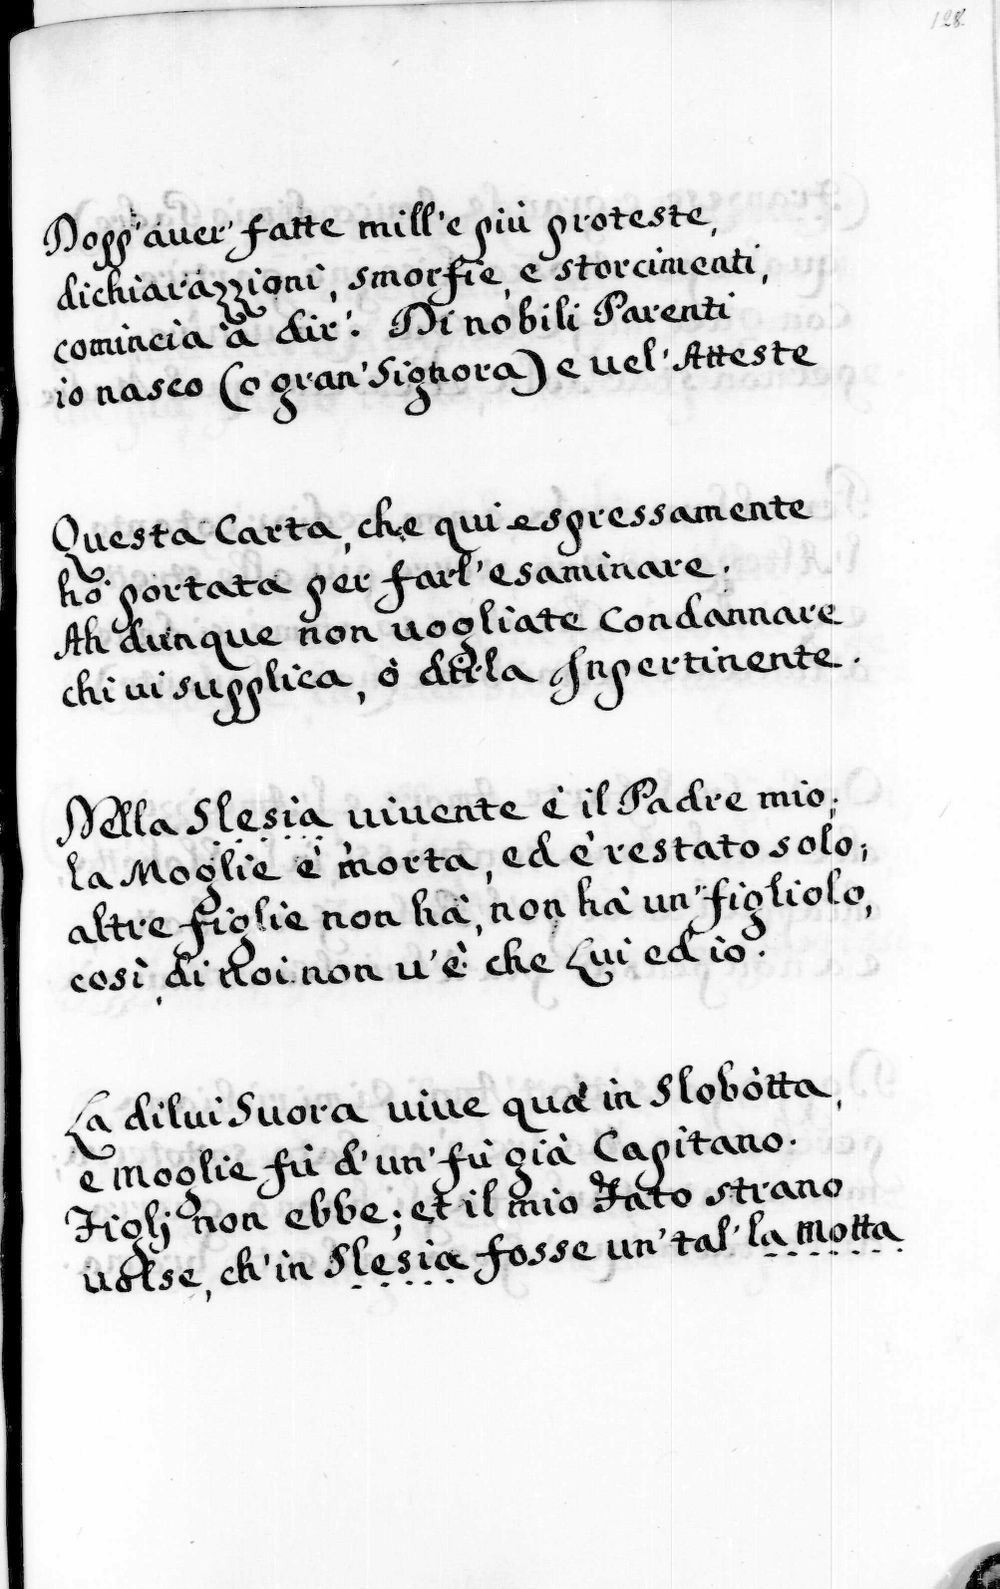 128.
Dopp'auer' fatte mill'e più proteste,
dichiarazzioni, smorfie, e storcimenti,
comincia à dir': Di nobili Parenti
io nasco (o gran' Signora) e uel' Atteste
Questa Carta, che qui espressamente
hò portata per farl' esaminare.
Ah dunque non uogliate Condannare
chi ui supplica, ò dirla Inpertinente.
Nella Slesia uiuente è il Padre mio;
la Moglie è morta, ed è restato solo;
altre figlie non hà, non hà un' figliolo,
così di noi non u'è che Lui ed io.
La dilui Suora uiue quà in Slobòtta,
e Moglie fù d'un' fù già Capitano.
Figlj non ebbe; et il mio Fato strano
uolse, ch'in Slesia fosse un' tal' la Motta